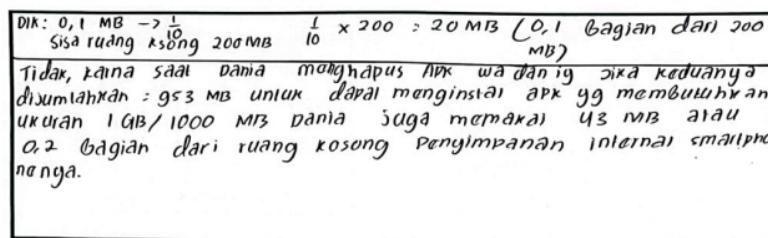 DIK: 0,1 MB -> 1/10 1/10 x 200 = 20 MB (0,1 bagian dari 200
Sisa ruang ksong 200 MB MB)
Tidak, karna saat Dania menghapus Apk wa dan ig jika keduanya
dijumlahkan = 953 MB untuk dapat menginstal apk yg membutuhkan
ukuran 1 GB/ 1000 MB Dania juga memakai 43 MB atau
0,2 bagian dari ruang kosong penyimpanan internal smartpho
nenya.